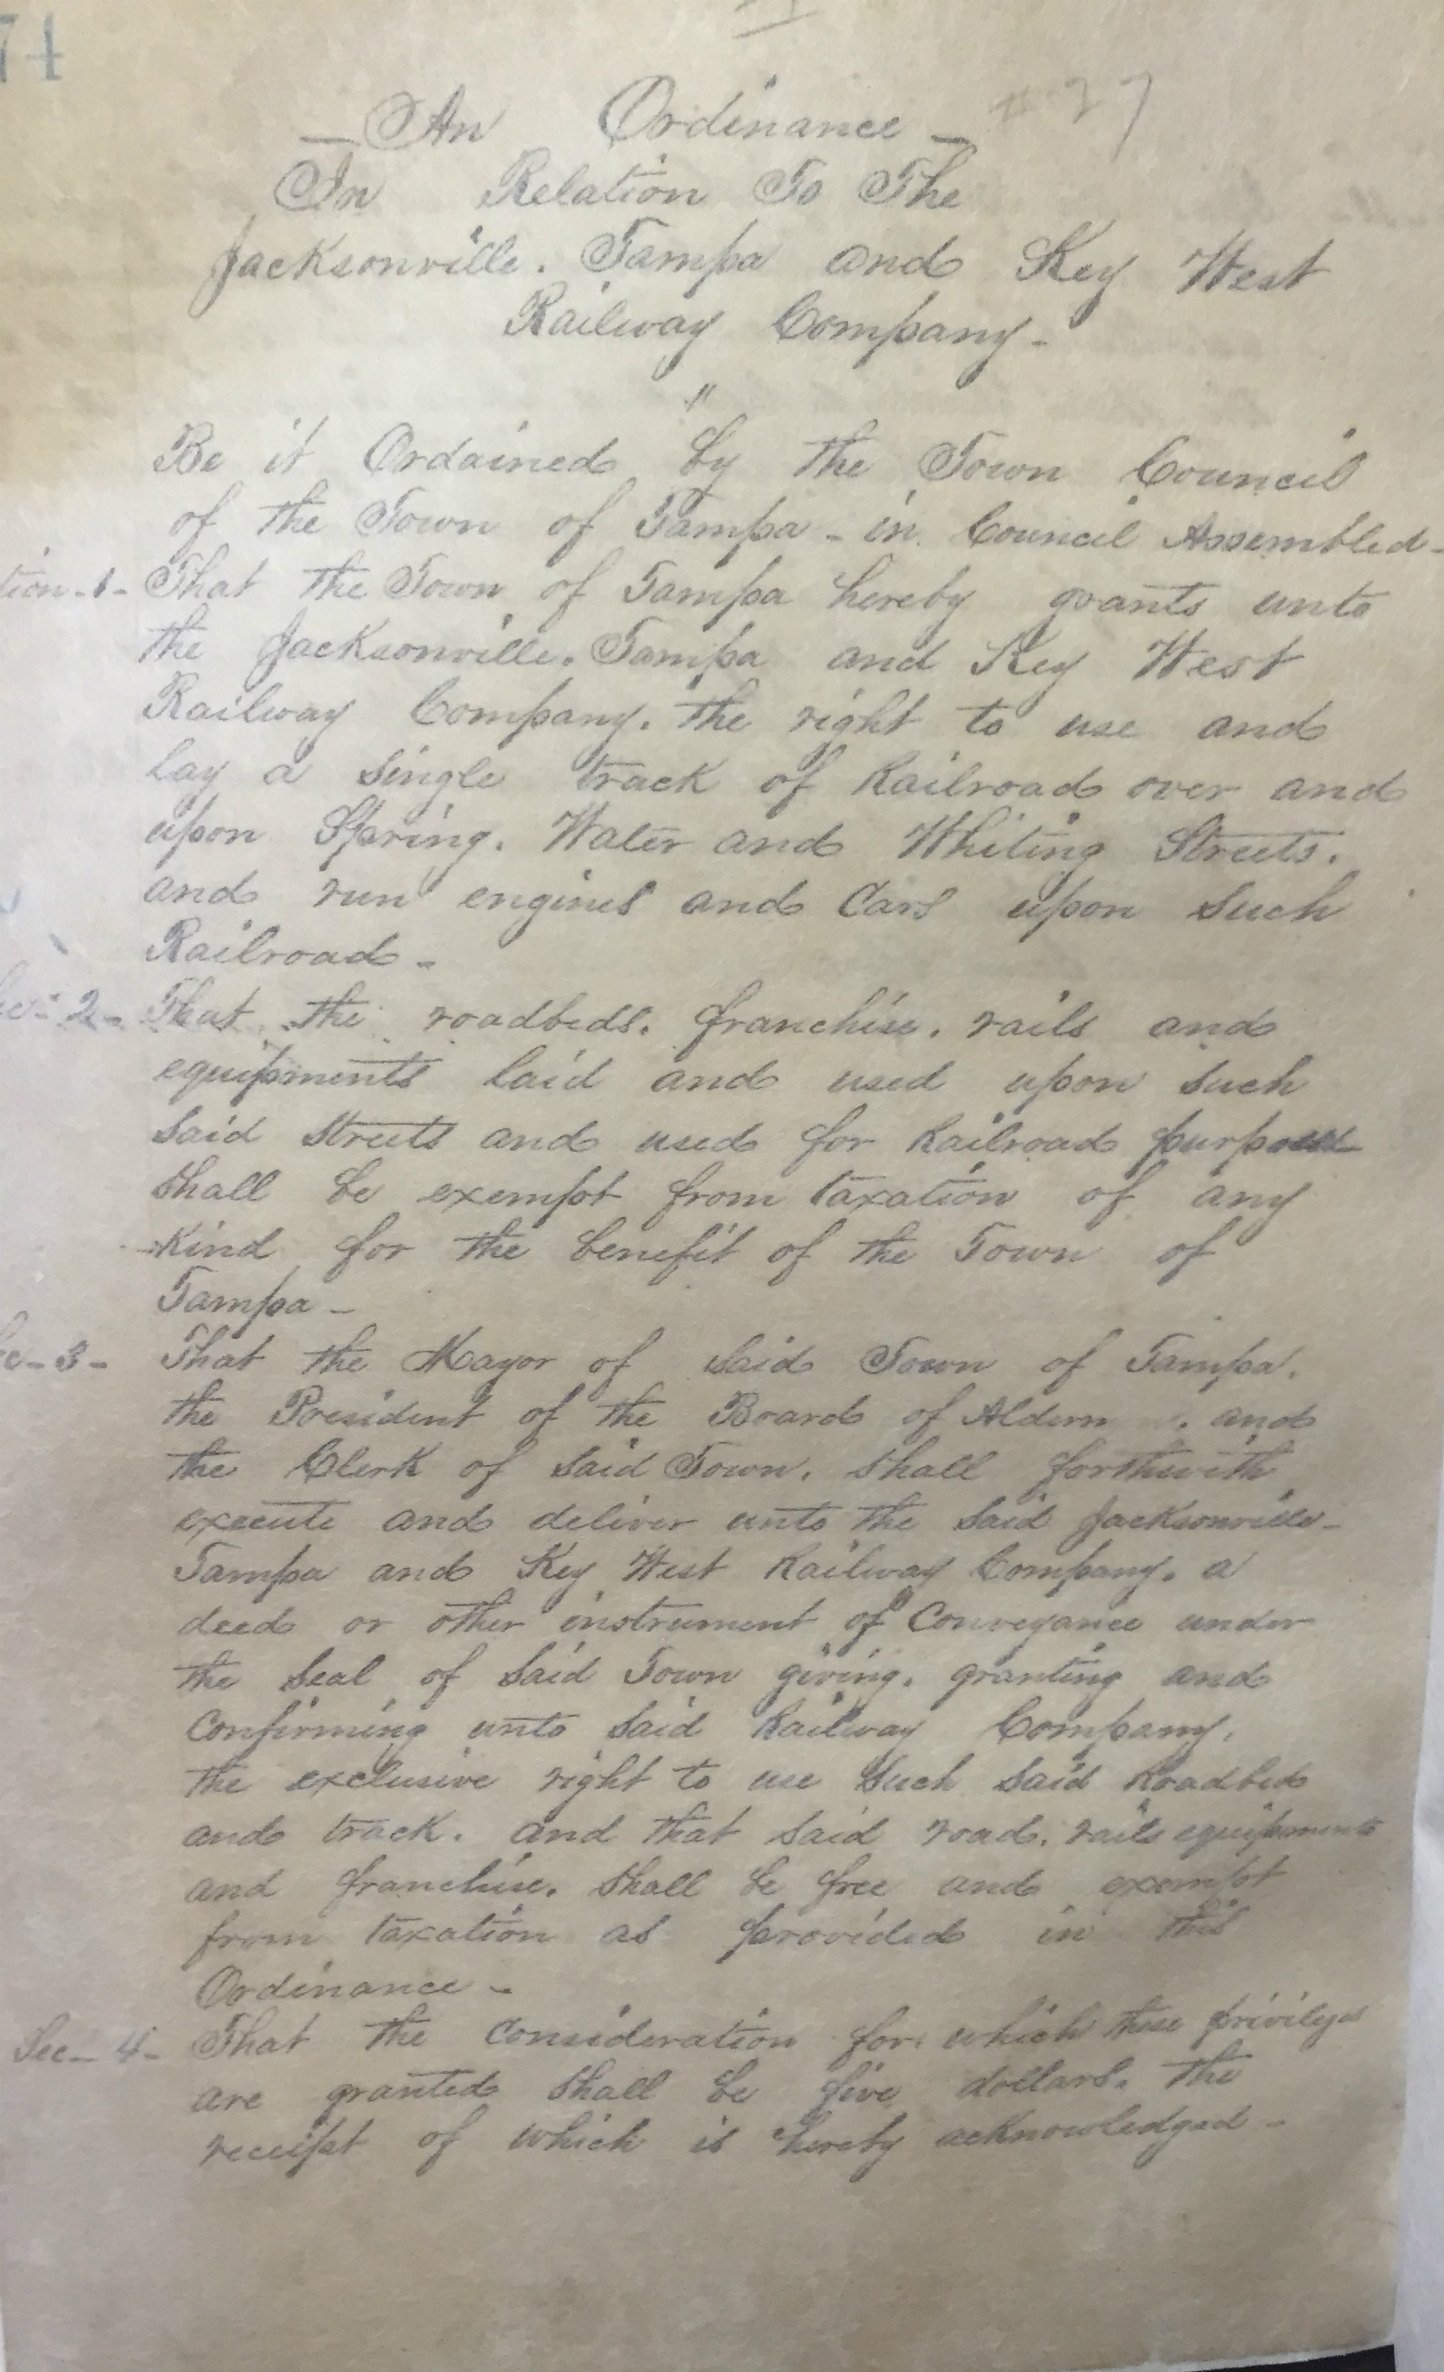 74
An Ordinance # 27
In Relation To The
Jacksonville. Tampa and Key West
Railway Company -
"
Be it Ordained by the Town Council
of the Town of Tampa - in Council Assembled -
tion - 1 - That the Town of Tampa hereby grants unto
the Jacksonville. Tampa and Key West
Railway Company. the right to use and
lay a single track of Railroad over and
upon Spring. Water and Whiting Streets.
and run engines and Cars upon such
Railroad -
ec - 2 - That the roadbeds. franchise. rails and
equipments laid and used upon such
said streets and used for Railroad purposes
shall be exempt from taxation of any
kind for the benefit of the Town of
Tampa -
ec - 3 - That the Mayor of said Town of Tampa.
the President of the Board of Alderm . and
the Clerk of said Town. shall forthwith
execute and deliver unto the said Jacksonville -
Tampa and Key West Railway Company. a
deed or other instrument of Conveyance under
the seal of said Town giving. granting and
Confirming unto said Railway Company.
the exclusive right to use such said Roadbed
and track. and that said road. rails equipments
and franchise. shall be free and exempt
from taxation as provided in this
Ordinance -
Sec - 4 - That the Consideration for which these privileges
are granted shall be five dollars. the
receipt of which is hereby acknowledged -